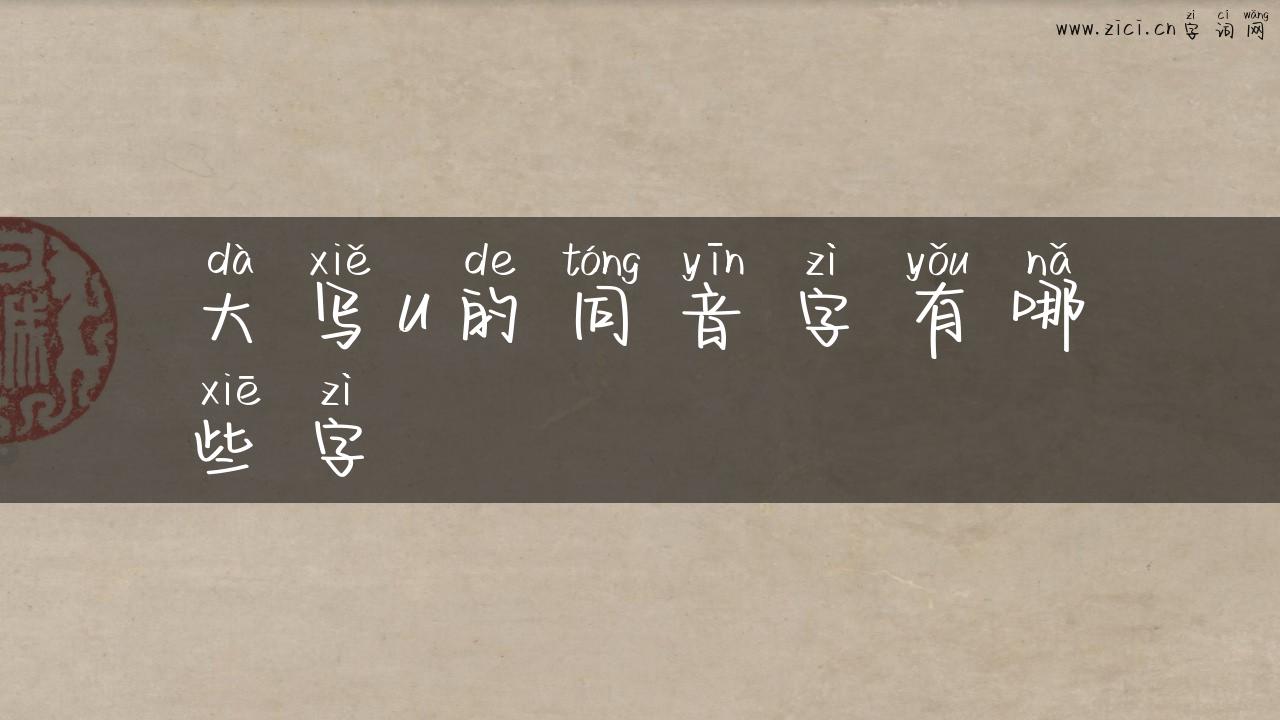 zì cí wǎng
www.zici.cn字词网
dà xiě de tóng yīn zì yǒu nǎ
大写u的同音字有哪
xiē zì
些字